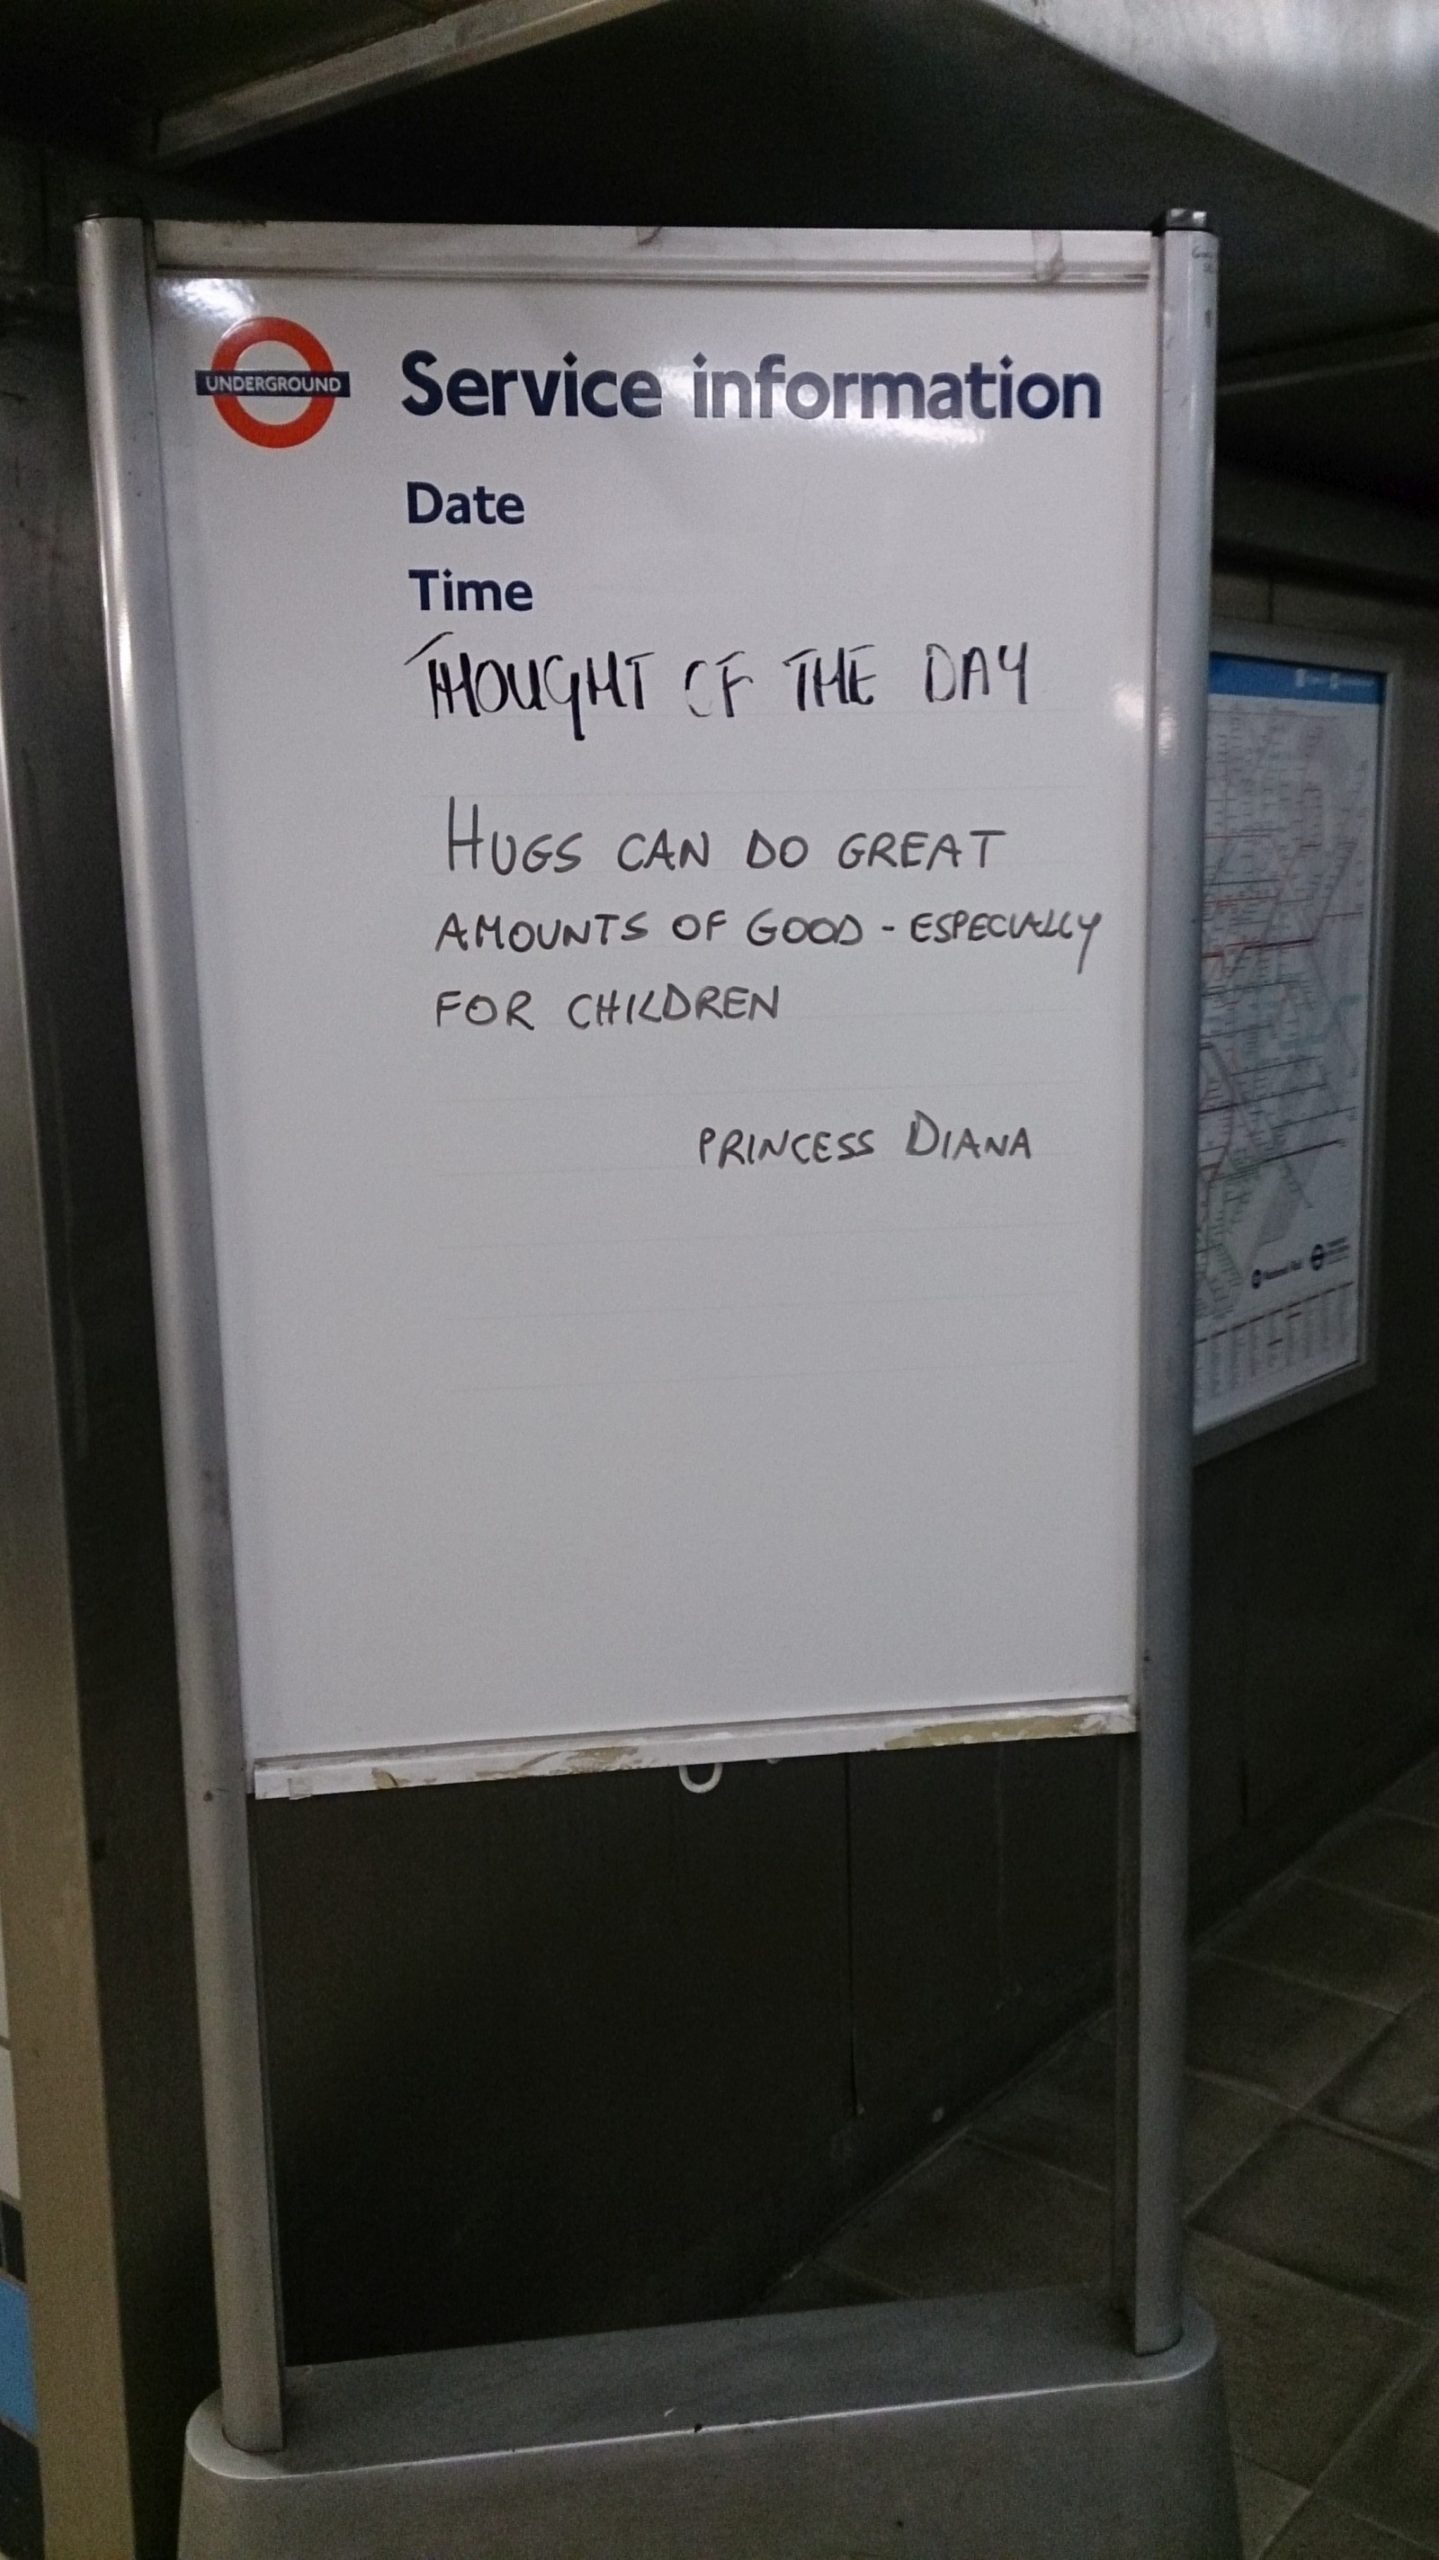 UNDERGROUND
Service information
Date
Time
THOUGHT OF THE DAY
HUGS CAN DO GREAT
AMOUNTS OF GOOD - ESPECIALLY
FOR CHILDREN
PRINCESS DIANA
National Rail